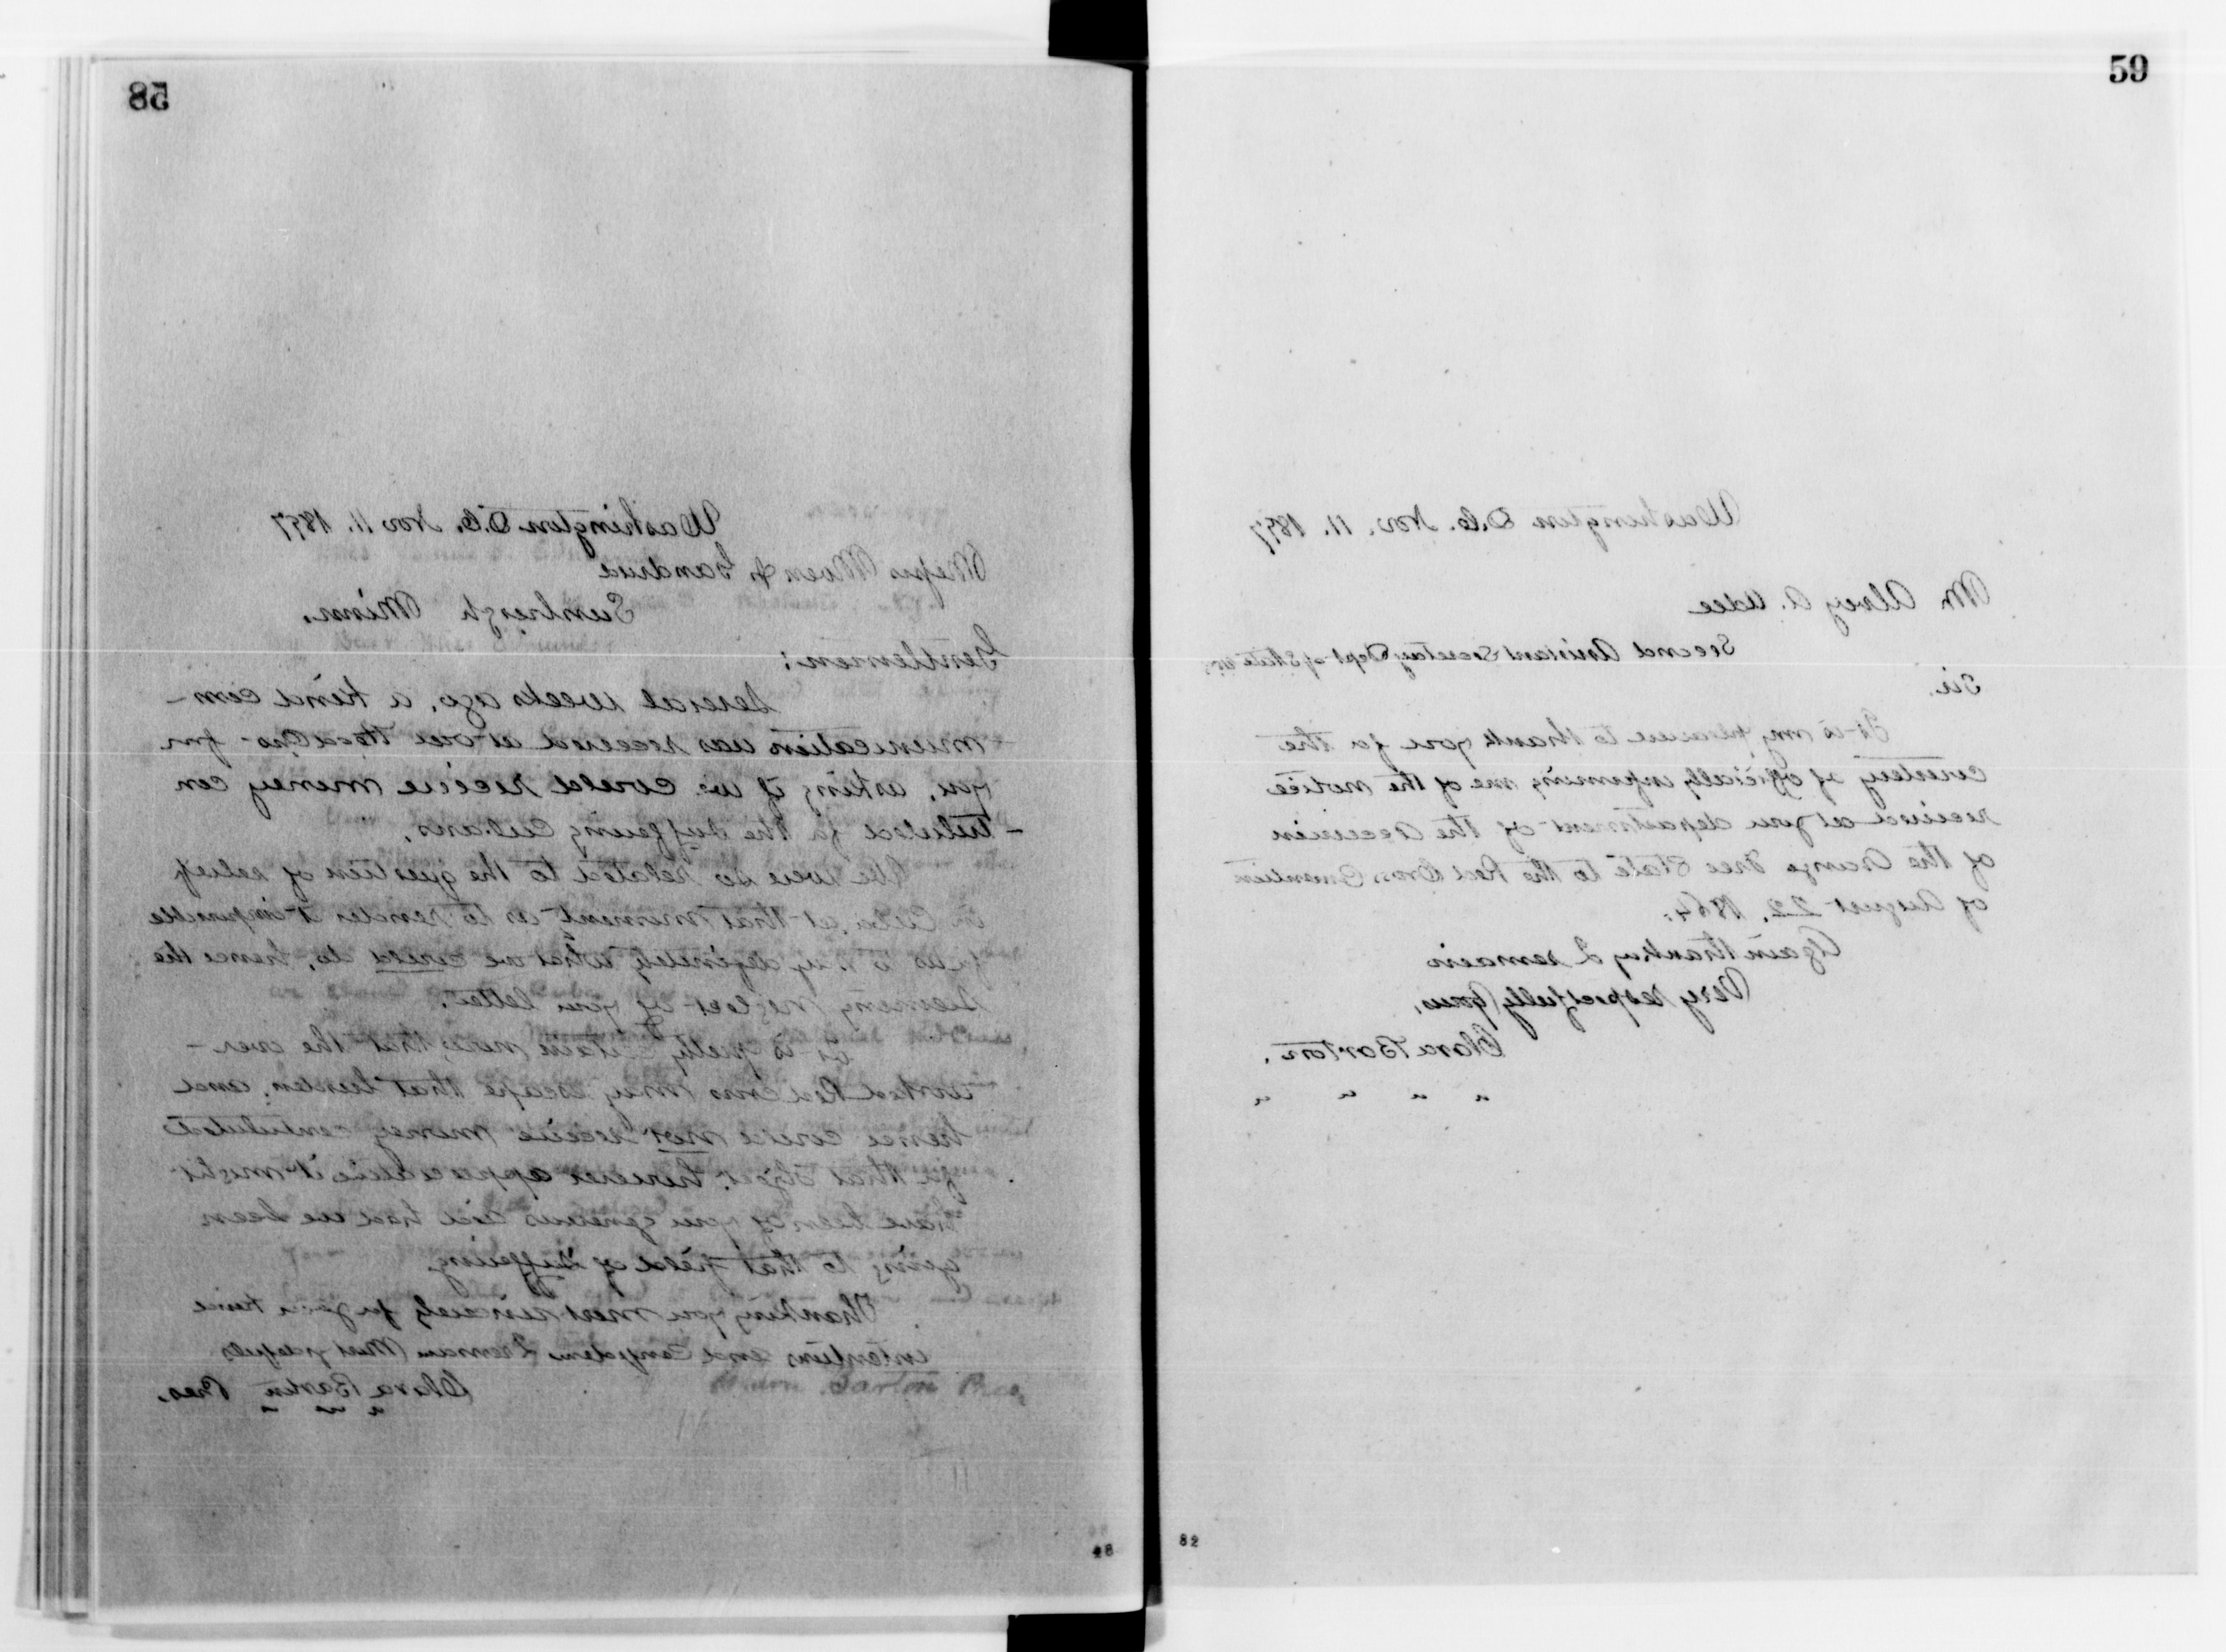 58
Washington D.C. Nov 11. 1897
Messrs Moen &
Minn.
Gentlemen:
Several weeks ago, a kind com-
munication was received at our Head Qrs from
you, asking if we could receive money con
-tributed for the suffering Cubans.
We were so related to the question of relief
in Cuba at that moment as to render it impossible
for us to say definitely what we could do, hence the
seeming neglect of your letter.
It is pretty certain now, that the over-
worked Red Cross may escape that burden, and
hence could not receive money contributed
for that object, however appreciative it might
have been of your generous aid had we been
going to that field of suffering.
Thanking you most sincerely for your kind
intentions and confidence I remain Most gratefully
Clara Barton Pres.
" " "
48
59
Washington D.C. Nov. 11. 1897
Mr Alvey A. Adee
Second Assistant Secretary Dept of State
Sir.
It is my pleasure to thank you for the
courtesy of officially informing me of the notice
received at your department of the accession
of the Orange Free State to the Red Cross Convention
of August 22, 1864.
Again thanking I remain
Very respectfully yours,
Clara Barton.
" " " "
82